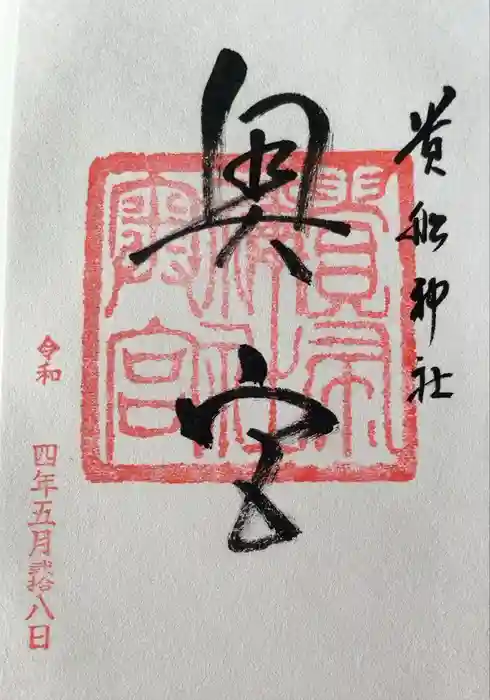 貴船神社
奥宮
令和 四年五月弐拾八日